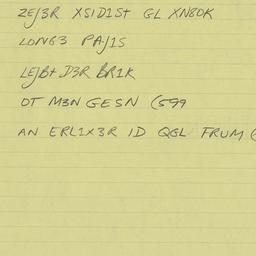 ZEJ3R XSID1St GL XN80K
LONG3 PAJ1S
LEJBt D3R BR1K
OT M3N GESN (S99
AN ERL1X3R ID QGL FRUM (